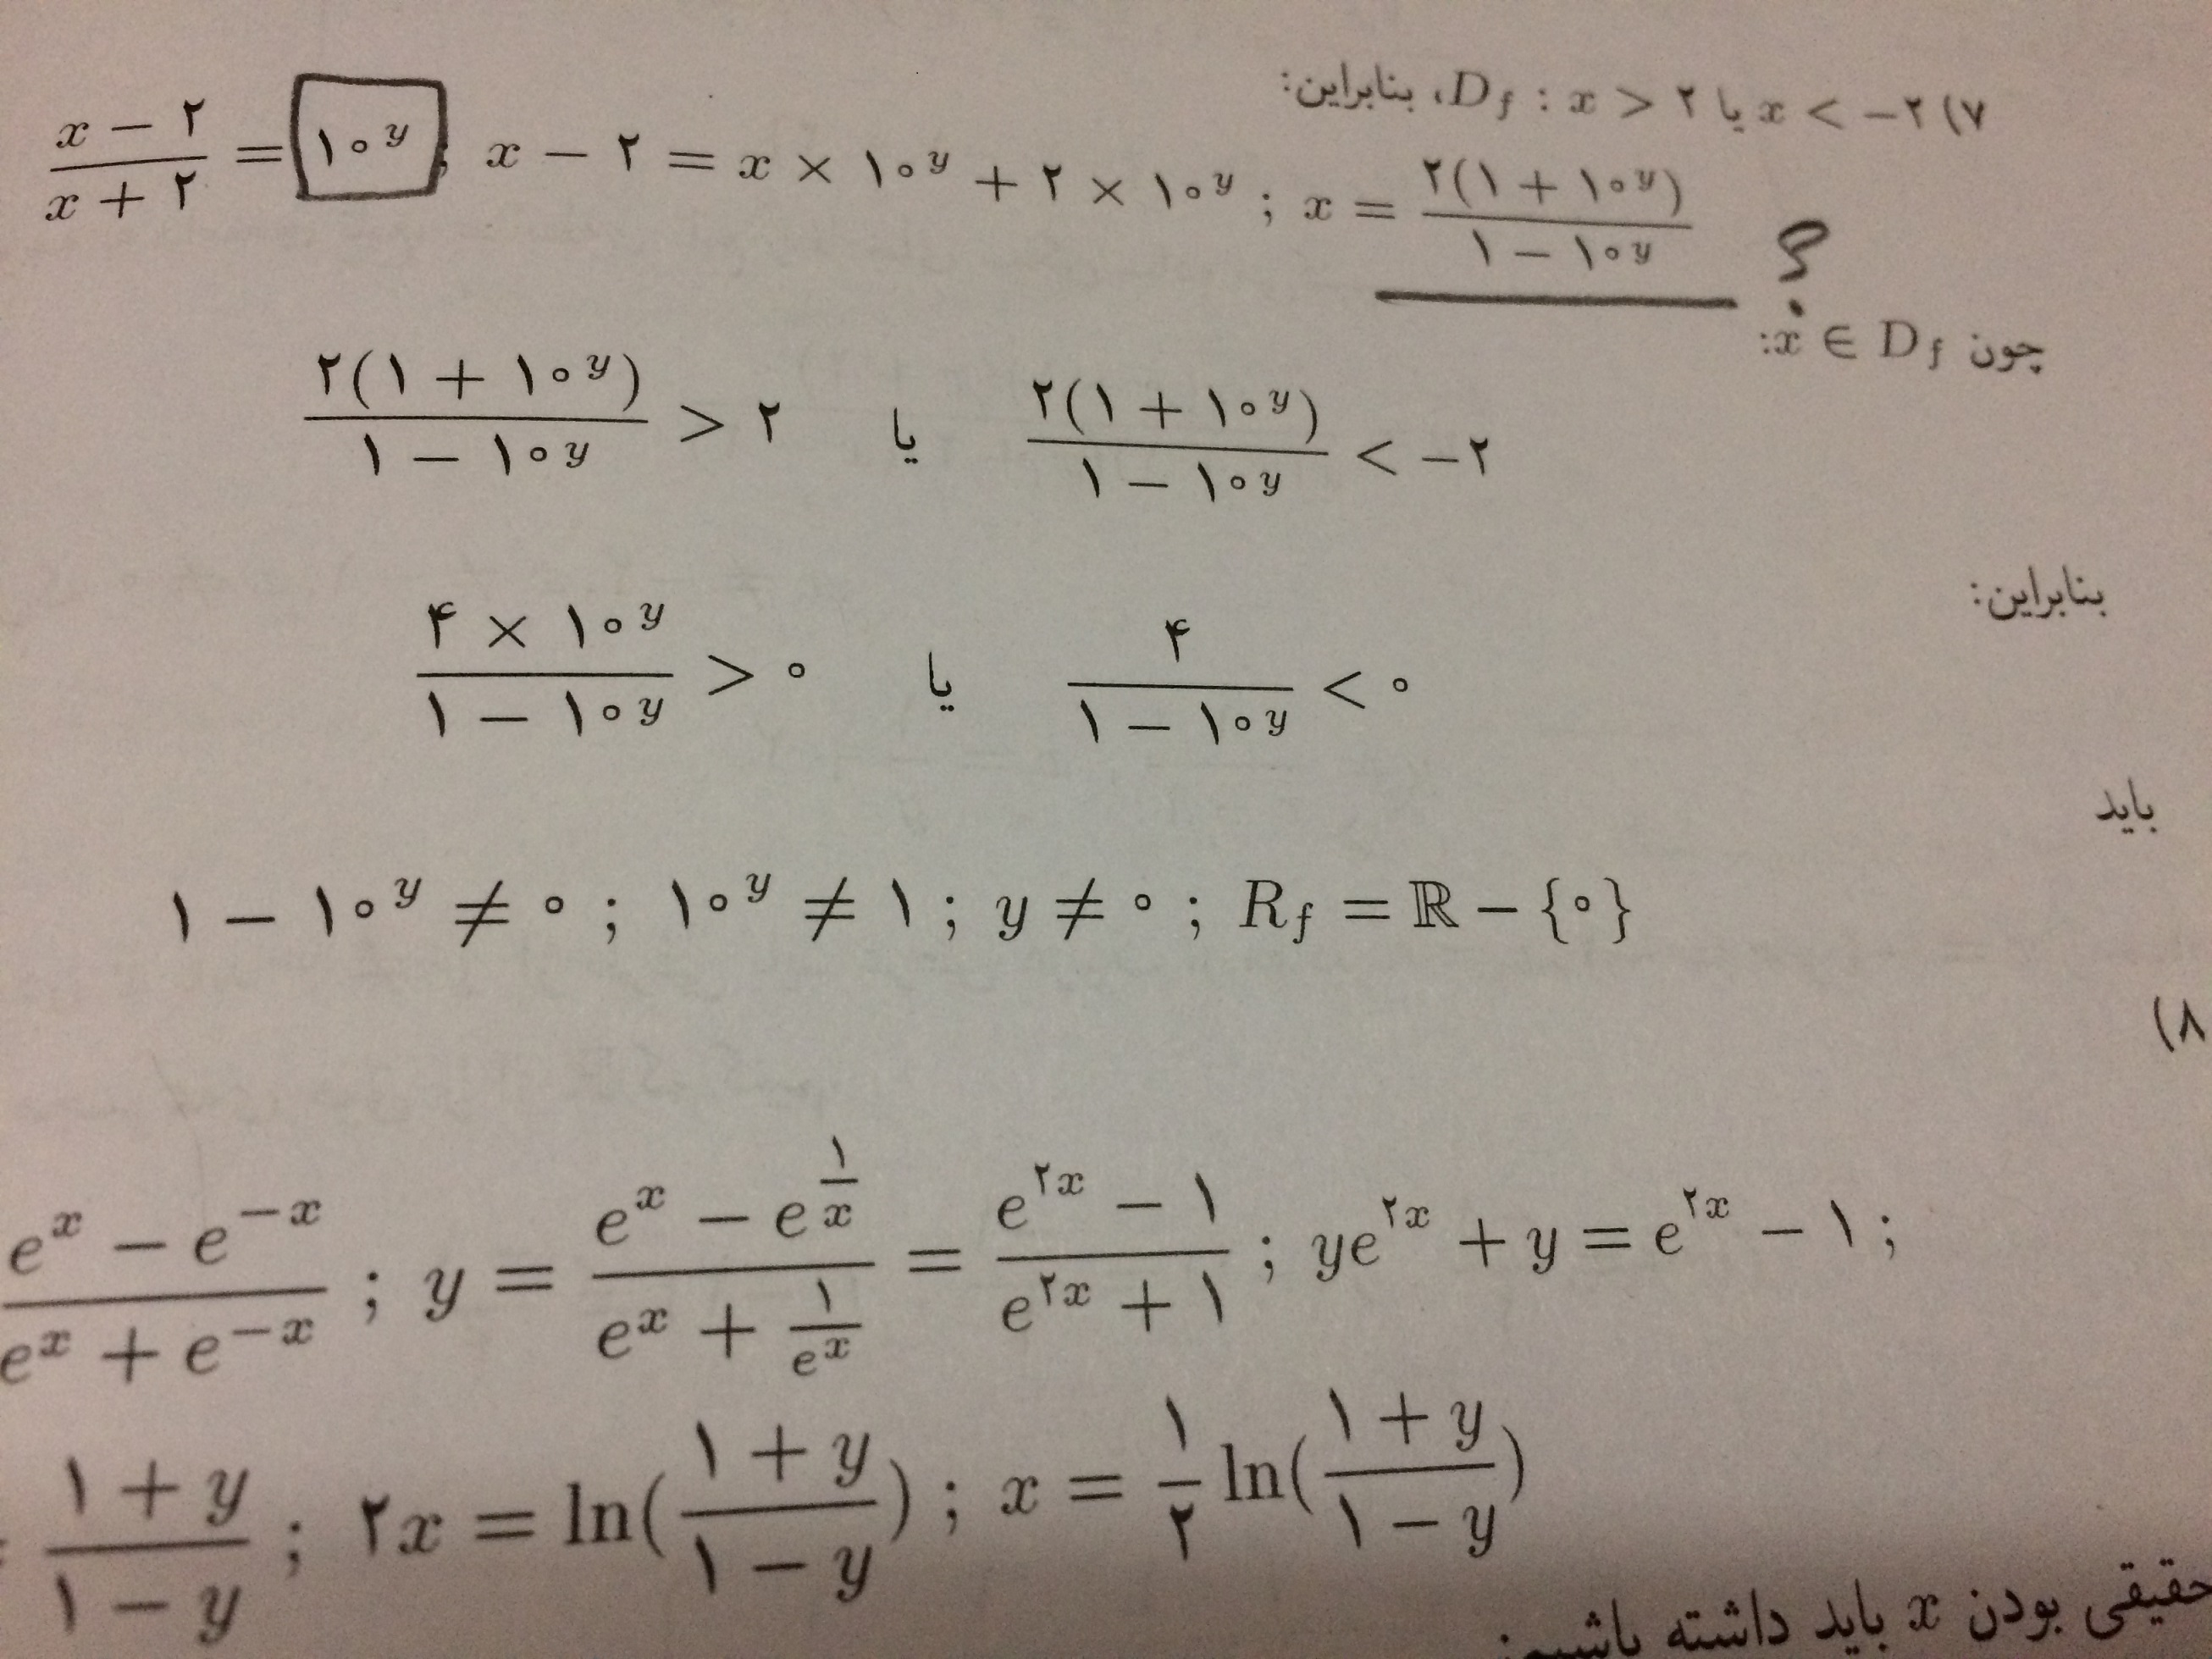 ۷) x < −۲ یا D_f : x > ۲، بنابراین:
(x − ۲)/(x + ۲) = ۱۰^y ; x − ۲ = x × ۱۰^y + ۲ × ۱۰^y ; x = ۲(۱ + ۱۰^y)/(۱ − ۱۰^y) ؟
چون x ∈ D_f:
۲(۱ + ۱۰^y)/(۱ − ۱۰^y) > ۲ یا ۲(۱ + ۱۰^y)/(۱ − ۱۰^y) < −۲
بنابراین:
(۴ × ۱۰^y)/(۱ − ۱۰^y) > ۰ یا ۴/(۱ − ۱۰^y) < ۰
باید
۱ − ۱۰^y ≠ ۰ ; ۱۰^y ≠ ۱ ; y ≠ ۰ ; R_f = ℝ − {۰}
۸)
(e^x − e^{−x})/(e^x + e^{−x}) ; y = (e^x − e^{۱/x})/(e^x + ۱/e^x) = (e^{۲x} − ۱)/(e^{۲x} + ۱) ; ye^{۲x} + y = e^{۲x} − ۱ ;
= (۱ + y)/(۱ − y) ; ۲x = ln((۱ + y)/(۱ − y)) ; x = ۱/۲ ln((۱ + y)/(۱ − y))
حقیقی بودن x باید داشته باشیم: